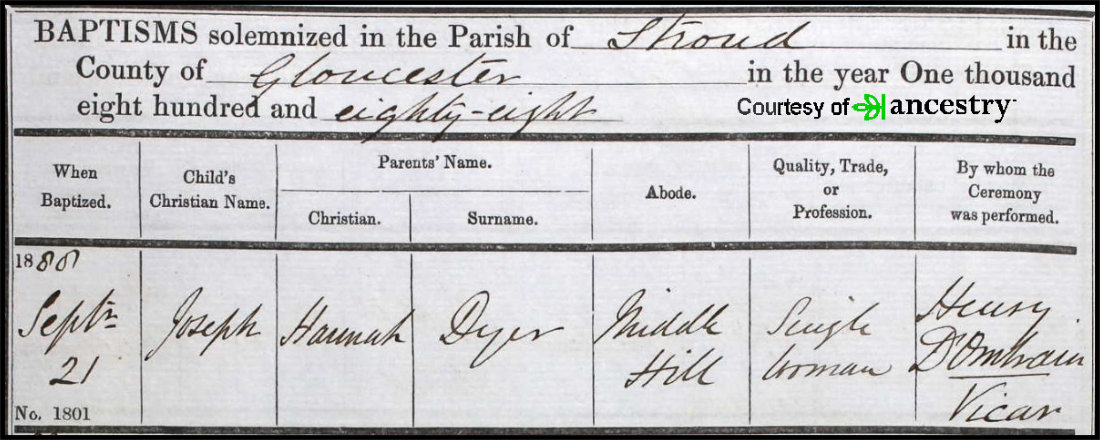 BAPTISMS solemnized in the Parish of Stroud in the
County of Gloucester in the year One thousand
eight hundred and eighty-eight
Courtesy of ancestry
When Baptized.
Child's Christian Name.
Parents' Name.
Christian.
Surname.
Abode.
Quality, Trade, or Profession.
By whom the Ceremony was performed.
1888
Septr
21
No. 1801
Joseph
Hannah
Dyer
Middle
Hill
Single
Woman
Henry
D'Ombrain
Vicar